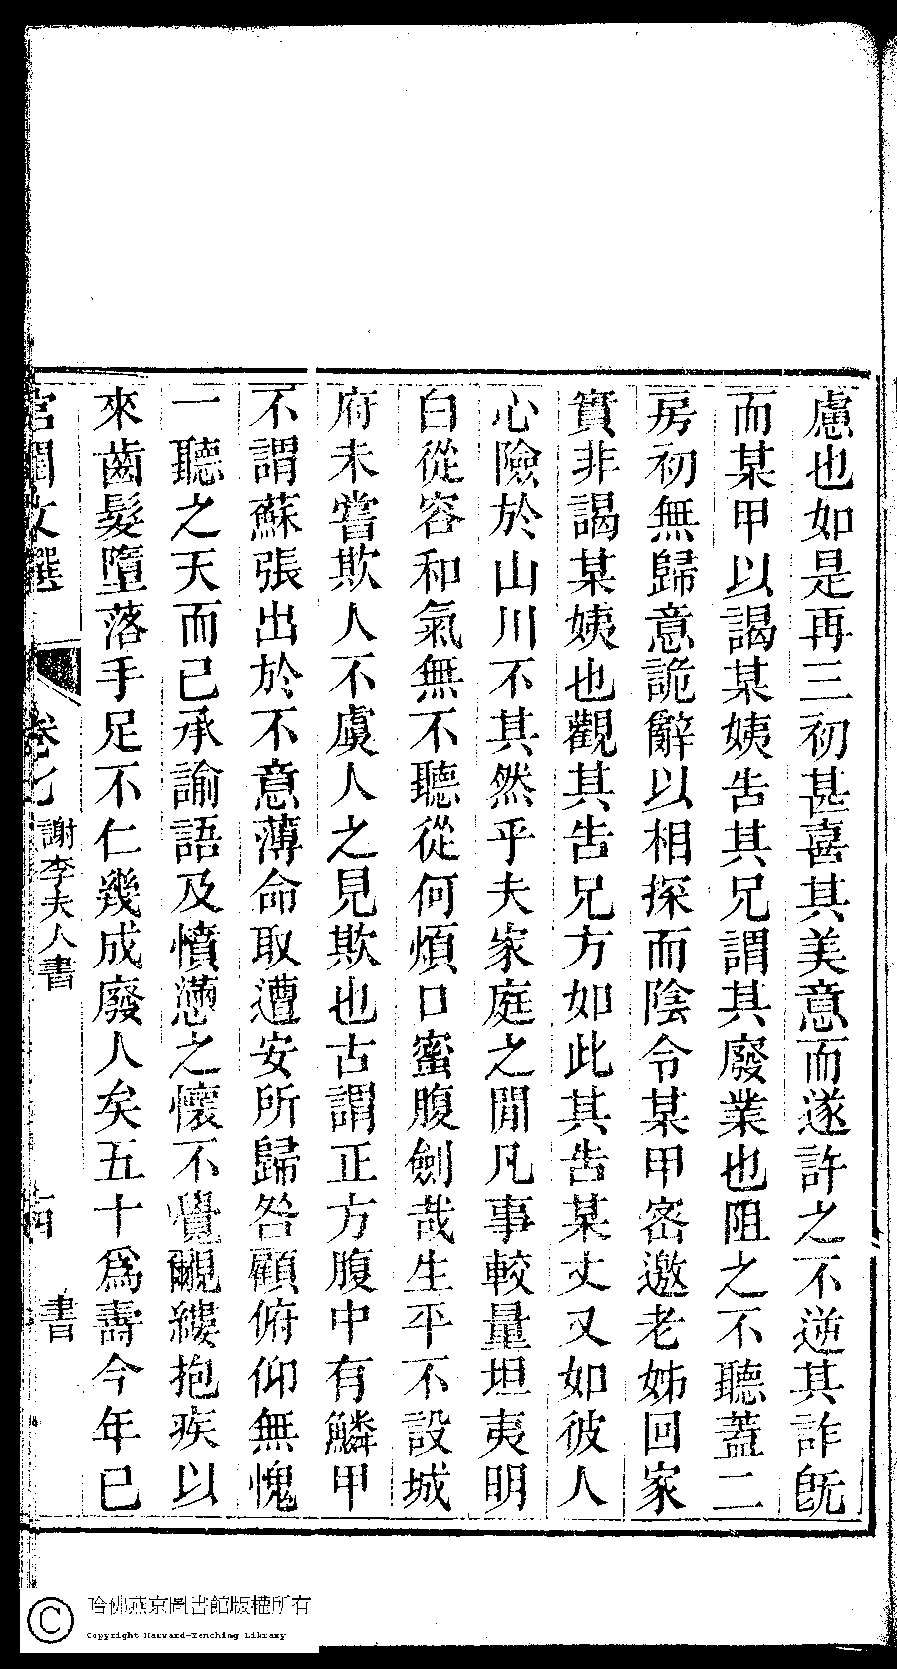 慮也如是再三初甚喜其美意而遂許之不逆其詐旣
而某甲以謁某姨告其兄謂其廢業也阻之不聽蓋二
房初無歸意詭辭以相探而陰令某甲密邀老姊回家
實非謁某姨也觀其告兄方如此其告某丈又如彼人
心險於山川不其然乎夫家庭之閒凡事較量坦夷明
白從容和氣無不聽從何煩口蜜腹劍哉生平不設城
府未嘗欺人不虞人之見欺也古謂正方腹中有鱗甲
不謂蘇張出於不意薄命取遭安所歸咎顧俯仰無愧
一聽之天而已承諭語及憤懣之懷不覺覼縷抱疾以
來齒髮墮落手足不仁幾成廢人矣五十爲壽今年已
宮閨文選 卷七 謝李夫人書 書
哈佛燕京圖書館版權所有
Copyright Harvard-Yenching Library